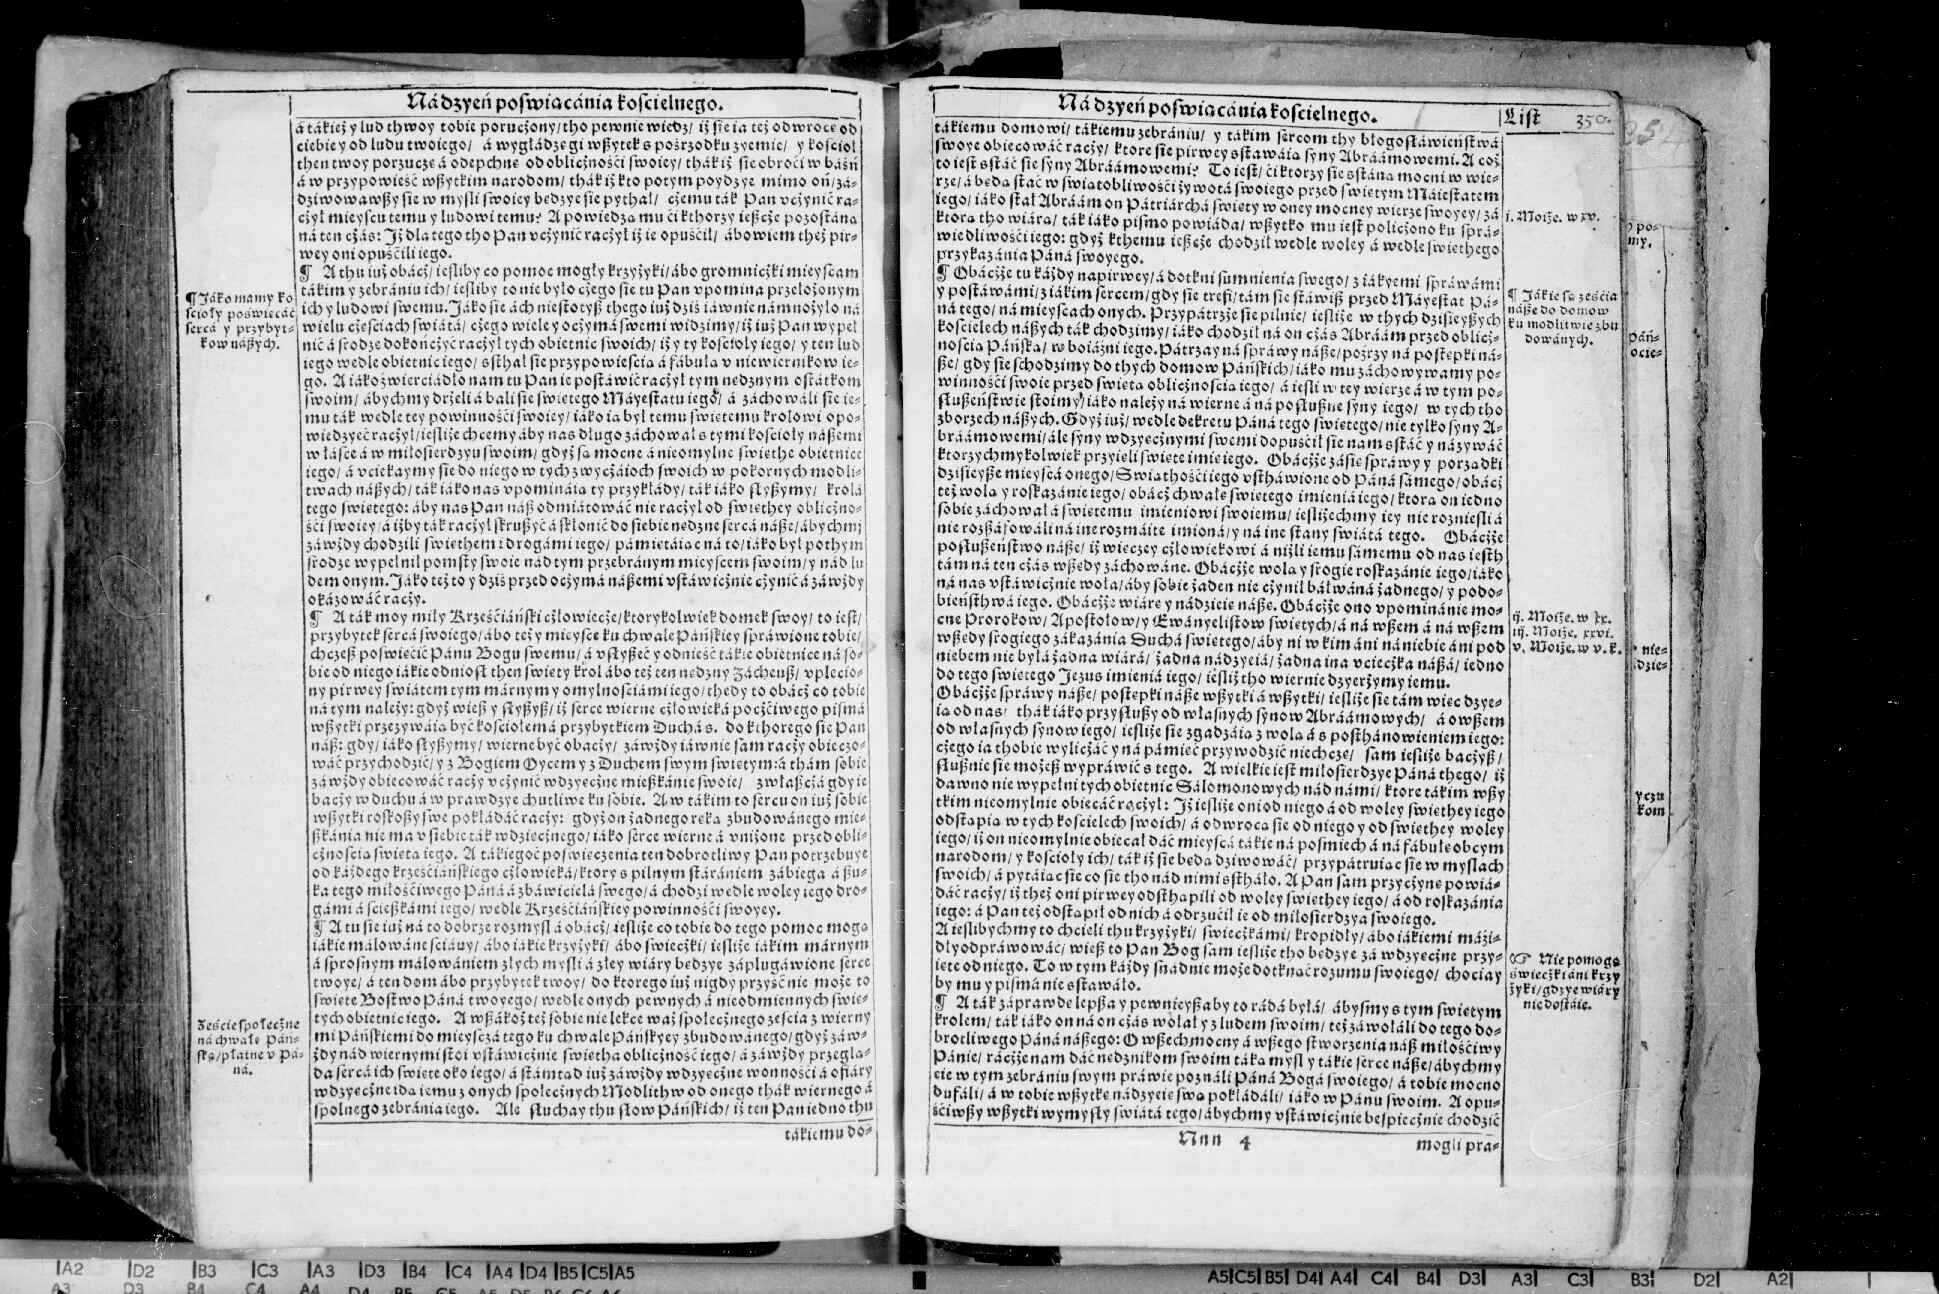 Ná dzyeń poswiącánia kościelnego.
á tákież y lud thwoy tobie poruczony/ tho pewnie wiedz/ iż sie ia też odwrocę od
ciebie y od ludu twoiego/ á wygládzę gi wszytek s pośrzodku zyemie/ y kościoł
then twoy porzuczę á odepchnę od obliczności swoiey/ thák iż sie obroći w baśń
á w przypowieść wszytkim narodom/ thák iż kto potym poydzye mimo oń/ zá-
dziwowawszy sie w myśli swoiey będzye sie pythał/ czemu ták Pan vczynić rá-
czył mieyscu temu y ludowi temu? A powiedzą mu ći kthorzy ieszcze pozostáną
ná ten czás: Iż dla tego tho Pan vczynić raczył iż ie opuśćił/ ábowiem też pir-
wey oni opuśćili iego.
¶ A thu iuż obacż/ iesliby co pomoc mogły krzyżyki/ ábo gromniczki mieyscam
tákim y zebrániu ich/ iesliby to nie było czego sie tu Pan vpomina przełożonym
ich y ludowi swemu. Jáko sie ách niestotyż thego iuż dziś iáwnie námnożyło ná
wielu częściách świátá/ czego wiele y oczymá swemi widzimy/ iż iuż Pan wypeł
nić á srodze dokończyć raczył tych obietnic swoich/ iż y ty kościoły iego/ y ten lud
iego wedle obietnic iego/ sstał sie przypowieścią á fábułą v niewiernikow ie-
go. A iáko zwierciádło nam tu Pan ie postáwić raczył tym nędznym ostátkom
swoim/ ábychmy drżeli á bali sie świętego Máyestatu iego/ á záchowáli sie ie-
mu ták wedle tey powinności swoiey/ iáko ią był temu świętemu krolowi opo-
wiedzyeć raczył/ ieśliże chcemy áby nas długo záchował s tymi kościoły nászemi
w łásce á w miłosierdzyu swoim/ gdyż są mocne á nieomylne święthe obietnice
iego/ á vciekaymy sie do niego w tych zwyczáioch swoich w pokornych modli-
twach nászych/ ták iáko nas vpomináią ty przykłády/ ták iáko słyszymy/ krolá
tego świętego: áby nas Pan nász odmiátowáć nie raczył od świethey obliczno-
ści swoiey/ á iżby ták raczył skruszyć á skłonić do siebie nędzne sercá násze/ ábychmy
záwżdy chodzili świethemi drogámi iego/ pámiętáiąc ná to/ iáko był pothym
srodze wypełnił pomsty swoie nád tym przebránym mieyscem swoim/ y nád lu
dem onym. Jáko też to y dziś przed oczymá nászemi vstáwicznie czynić á záwżdy
okázowáć raczy.
¶ A ták moy miły Krześćiáński człowiecze/ ktorykolwiek domek swoy/ to iest/
przybytek sercá swoiego/ ábo też y mieysce ku chwale Páńskiey spráwione tobie/
chcesz poświęćić Pánu Bogu swemu/ á vsłyszeć y odnieść tákie obietnice ná so-
bie od niego iákie odniosł then święty krol ábo też ten nędzny Zácheusz/ vplecio-
ny pirwey świátem tym márnym y omylnościámi iego/ thedy to obacż co tobie
ná tym należy: gdyż wiesz y słyszysz/ iż serce wierne człowieká poczciwego pismá
wszytki przezywáią być kościołem á przybytkiem Duchá s. do kthorego sie Pan
nász: gdy/ iáko słyszymy/ wierne być obaczy/ záwżdy iáwnie sam raczy obieczo-
wáć przychodzić/ y z Bogiem Oycem y z Duchem swym świętym: á thám sobie
záwżdy obiecowáć raczy vczynić wdzyęczne mieszkánie swoie/ zwłaszczá gdy ie
baczy w duchu á w prawdzye chutliwe ku sobie. A w tákim to sercu on iuż sobie
wszytki roskoszy swe pokłádáć raczy: gdyż on żadnego ręką zbudowánego mie-
szkánia nie ma v siebie ták wdzięcznego/ iáko serce wierne á vniżone przed obli-
cznością świętą iego. A tákiegoć poświęczenia ten dobrotliwy Pan potrzebuye
od káżdego krześćiáńskiego człowieká/ ktory s pilnym stárániem zábiega á szu-
ka tego miłościwego Páná á zbáwicielá swego/ á chodzi wedle woley iego dro-
gámi á ścieszkámi iego/ wedle Krześćiáńskiey powinności swoyey.
¶ A tu sie iuż ná to dobrze rozmyśl á obacż/ ieśliże co tobie do tego pomoc mogą
iákie málowáne ściány/ ábo iákie krzyżyki/ ábo świeczki/ ieśliże iákim márnym
á sprosnym málowániem złych myśli á złey wiáry będzye záplugáwione serce
twoye/ á ten dom ábo przybytek twoy/ do ktorego iuż nigdy przyść nie może to
święte Bostwo Páná twoyego/ wedle onych pewnych á nieodmiennych świę-
tych obietnic iego. A wszákoż też sobie nie lekce waż społecznego ześcia z wierny
mi Páńskiemi do mieyscá tego ku chwale Páńskyey zbudowánego/ gdyż záw-
żdy nád wiernymi stoi vstáwicznie świętha obliczność iego/ á záwżdy przeglą-
da sercá ich święte oko iego/ á stámtąd iuż záwżdy wdzyęczne wonności á ofiáry
wdzyęczne idą iemu z onych społecznych Modlithw od onego thák wiernego á
spolnego zebránia iego. Ale słuchay thu słow Páńskich/ iż ten Pan iedno thu
tákiemu do-
¶ Jáko mamy ko
ścioły poświęcáć
sercá y przybyt-
kow nászych.
Zeście społeczne
ná chwałę Páń-
ską/ płátne v Pá-
ná.
Ná dzyeń poświącánia kościelnego.
List 350.
tákiemu domowi/ tákiemu zebrániu/ y tákim sercom thy błogosłáwieństwá
swoye obiecowáć raczy/ ktore sie pirwey sstawáią syny Abráámowemi. A coż
to iest sstáć sie syny Abráámowemi? To iest/ ći ktorzy sie sstáną mocni w wie-
rze/ á będą stać w świątobliwości żywotá swoiego przed świętym Máiestatem
iego/ iáko stał Abráám on Pátryárchá święty w oney mocney wierze swoyey/ zá
ktorą tho wiárá/ ták iáko pismo powiáda/ wszytko mu iest policzono ku sprá-
wiedliwości iego: gdyż kthemu ieszcze chodził wedle woley á wedle świethego
przykazánia Páná swoyego.
¶ Obaczże tu káżdy napirwey/ á dotkni sumnienia swego/ z iákyemi spráwámi
y postáwámi/ z iákim sercem/ gdy sie trefi/ tám sie stáwisz przed Máyestat Pá-
ná tego/ ná mieyscách onych. Przypátrzże sie pilnie/ ieśliże w thych dzisieyszych
kościelech nászych ták chodzimy/ iáko chodził ná on czás Abráám przed oblicż-
nością Páńską/ w boiáźni iego. Pátrzay ná spráwy násze/ poźrzy ná postępki ná-
sze/ gdy sie schodzimy do thych domow Páńskich/ iáko mu záchowywamy po-
winności swoie przed świętą oblicznością iego/ á ieśli w tey wierze á w tym po-
słuszeństwie stoimy/ iáko należy ná wierne á ná posłuszne syny iego/ w tych tho
zborzech nászych. Gdyż iuż/ wedle dekretu Páná tego świętego/ nie tylko syny A-
bráámowemi/ ále syny wdzyęcznymi swemi dopuśćił sie nam sstáć y názywáć
ktorzychmykolwiek przyięli święte imię iego. Obaczże zásię spráwy y porządki
dzisieysze mieyscá onego/ Świątości iego vsthawione od Páná sámego/ obacż
też wolą y roskazánie iego/ obacż chwałę świętego imienia iego/ ktorą on iedno
sobie záchował á świętemu imieniowi swoiemu/ ieślizechmy iey nie roznieśli á
nie rozszáfowáli ná ine rozmáite imioná/ y ná ine stany świátá tego. Obaczże
posłuszeństwo násze/ iż więczey człowiekowi á niżli iemu sámemu od nas iesth
tám ná ten czás wszędy záchowáne. Obaczże wolą y srogie roskazánie iego/ iáko
ná nas vstáwicznie woła/ áby sobie żaden nie czynił báłwaná żadnego/ y podo-
bieństhwá iego. Obaczże wiárę y nádzieię nászę. Obaczże ono vpominánie mo-
cne Prorokow/ Apostołow/ y Ewányelistow świętych/ á ná wszem á ná wszem
wszędy srogiego zákazánia Duchá świętego/ áby ni w kim áni ná niebie áni pod
niebem nie byłá żadna wiárá/ żadna nádzyeiá/ żadna ina vcieczká nászá/ iedno
do tego świętego Jezus imienia iego/ ieśliż tho wiernie dzyerżymy iemu.
Obaczże spráwy násze/ postępki násze wszytki á wszytki/ ieśliże sie tám więc dzye-
ią od nas/ thák iáko przysłuszy od własnych synow Abráámowych/ á owszem
od własnych synow iego/ ieśliże sie zgadzáią z wolą á s posthánowieniem iego:
czego ia thobie wylicżáć y ná pámięć przywodzić niechcę/ sam ieśliże baczysz/
słusznie sie możesz wypráwić s tego. A wielkie iest miłosierdzye Páná thego/ iż
dawno nie wypełni tych obietnic Sálomonowych nád námi/ ktore tákim wszy
tkim nieomylnie obiecáć raczył: Iż ieśliże oni od niego á od woley świethey iego
odstąpią w tych kościelech swoich/ á odwrocą sie od niego y od świethey woley
iego/ iż on nieomylnie obiecał dáć mieyscá tákie ná pośmiech á ná fábułę obcym
narodom/ y kościoły ich/ ták iż sie będą dziwowáć/ przypátruiąc sie w myślach
swoich/ á pytáiąc sie co sie tho nád nimi sstháło. A Pan sam przyczynę powiá-
dáć raczy/ iż theż oni pirwey odsthąpili od woley świethey iego/ á od roskazánia
iego: á Pan też odstąpił od nich á odrzućił ie od miłosierdzya swoiego.
A ieslibychmy to chcieli thu krzyżyki/ świeczkámi/ kropidły/ ábo iákiemi mázi-
dły odpráwowáć/ wiesz to Pan Bog sam ieśliże tho będzye zá wdzyęczne przy-
ięte od niego. To w tym káżdy snádnie może dotknąć rozumu swoiego/ chociay
by mu y pismá nie sstawáło.
¶ A ták záprawdę lepsza y pewnieysza by to rádá byłá/ ábysmy s tym świętym
krolem/ ták iáko on ná on czás wołał y z ludem swoim/ też záwołáli do tego do-
brotliwego Páná nászego: O wszechmocny á wszego stworzenia nász miłościwy
Pánie/ raczże nam dáć nędznikom swoim táką myśl y tákie serce násze/ ábychmy
cie w tym zebrániu swym práwie poználi Páná Bogá swoiego/ á tobie mocno
dufáli/ á w tobie wszytkę nádzyeię swą pokłádáli/ iáko w Pánu swoim. A opu-
śćiwszy wszytki wymysły świátá tego/ ábychmy vstáwicznie bespiecznie chodzić
Nnn 4
mogli prá-
j. Moiże. w xv.
¶ Jákie są ześcia
násze do domow
ku modlitwie zbu
dowánych.
ij. Moiże. w xx.
iij. Moiże. xxvi.
v. Moiże. w v. k.
☞ Nie pomogą
świeczki áni krzy
żyki/ gdzye wiáry
nie dostáie.
po-
my.
páń-
ocie-
nie-
dzie-
yczu
kom
A2 D2 B3 C3 A3 D3 B4 C4 A4 D4 B5 C5 A5
A5 C5 B5 D4 A4 C4 B4 D3 A3 C3 B3 D2 A2